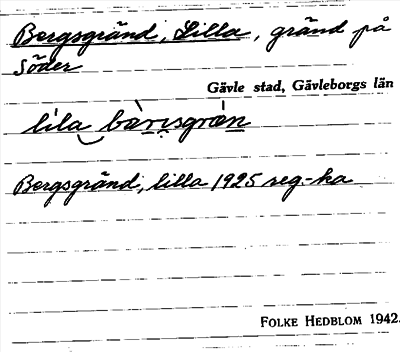 Bergsgränd, Lilla, gränd på
Söder
Gävle stad, Gävleborgs län
lila bàrisgràn
Bergsgränd, lilla 1925 reg.-ka
FOLKE HEDBLOM 1942.